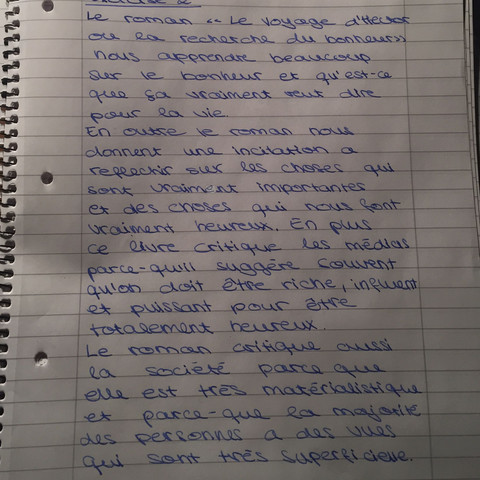 Le roman « Le voyage d'Hector
ou la recherche du bonheur»
nous apprendre beaucoup
sur le bonheur et qu'est-ce
que ça vraiment veut dire
pour la vie.
En outre le roman nous
donnent une incitation a
reflectir sur les choses qui
sont vraiment importantes
et des choses qui nous font
vraiment heureux. En plus
ce livre critique les médias
parce-qu'il suggère souvent
qu'on doit être riche, influent
et puissant pour être
totalement heureux.
Le roman critique aussi
la société parce que
elle est très matérialistique
et parce-que la majorité
des personnes a des vues
qui sont très superficielle.